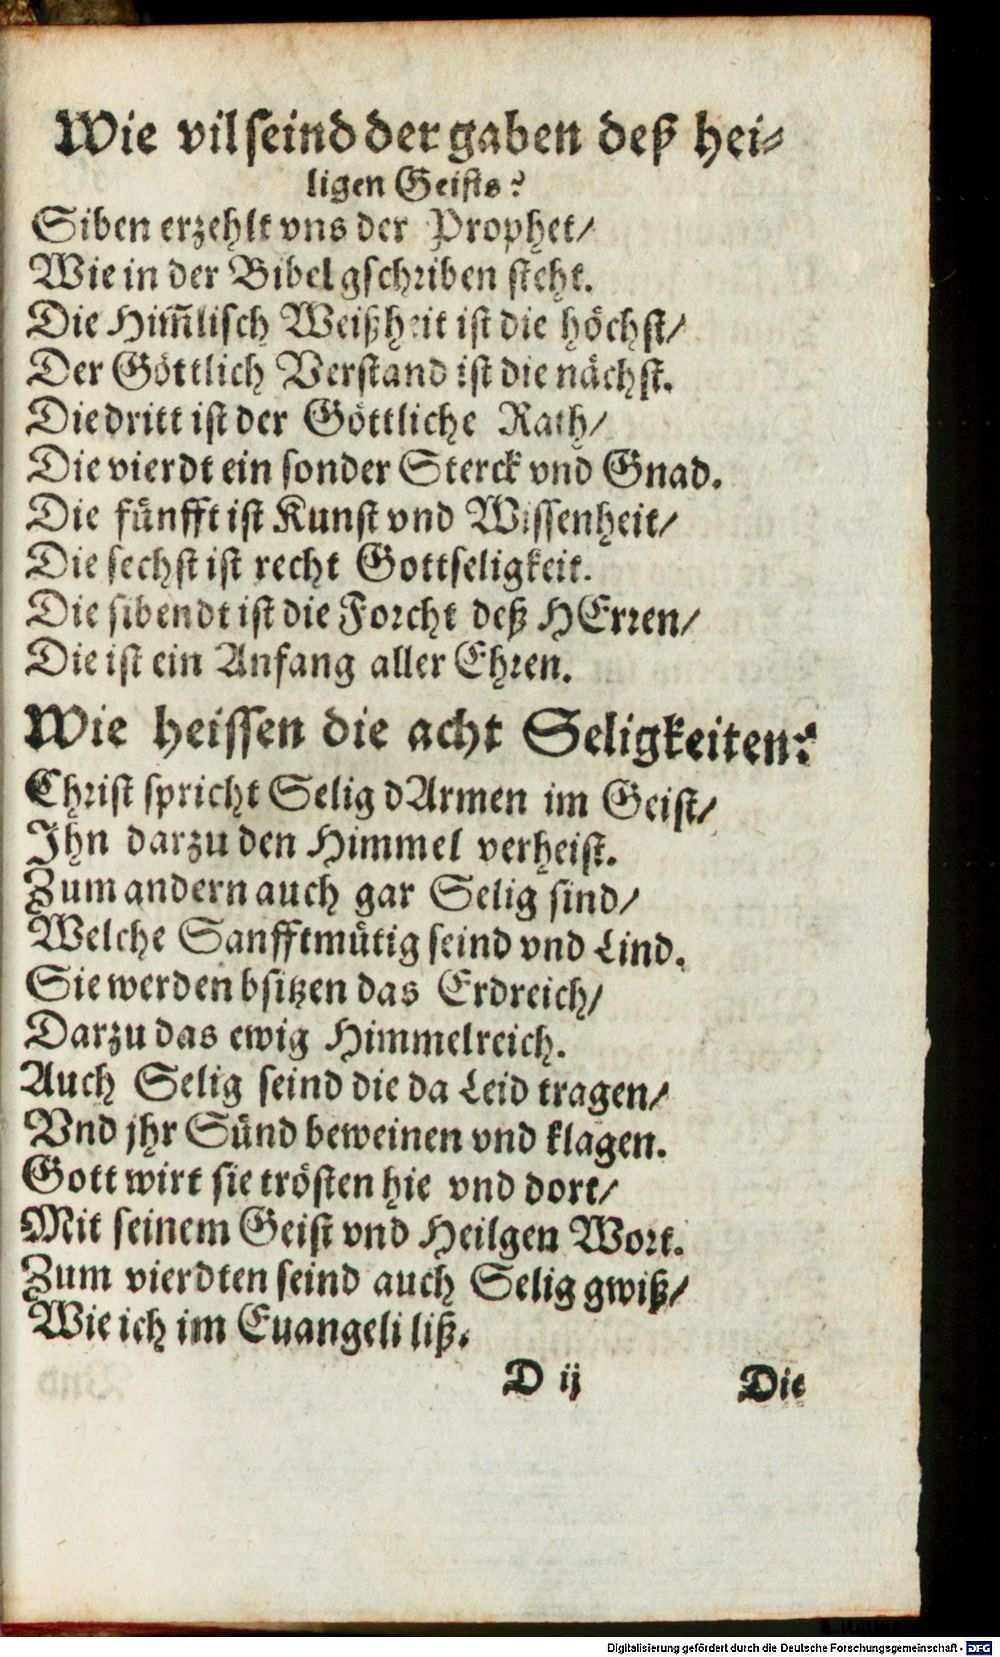 Wie vil seind der gaben deß hei-
ligen Geists?
Siben erzehlt vns der Prophet/
Wie in der Bibel gschriben steht.
Die Him̃lisch Weißheit ist die höchst/
Der Göttlich Verstand ist die nächst.
Die dritt ist der Göttliche Rath/
Die vierdt ein sonder Sterck vnd Gnad.
Die fünfft ist Kunst vnd Wissenheit/
Die sechst ist recht Gottseligkeit.
Die sibendt ist die Forcht deß HErren/
Die ist ein Anfang aller Ehren.
Wie heissen die acht Seligkeiten?
Christ spricht Selig dArmen im Geist/
Ihn darzu den Himmel verheist.
Zum andern auch gar Selig sind/
Welche Sanfftmütig seind vnd Lind.
Sie werden bsitzen das Erdreich/
Darzu das ewig Himmelreich.
Auch Selig seind die da Leid tragen/
Vnd jhr Sünd beweinen vnd klagen.
Gott wirt sie trösten hie vnd dort/
Mit seinem Geist vnd Heilgen Wort.
Zum vierdten seind auch Selig gwiß/
Wie ich im Euangeli liß.
D ij Die
Digitalisierung gefördert durch die Deutsche Forschungsgemeinschaft - DFG